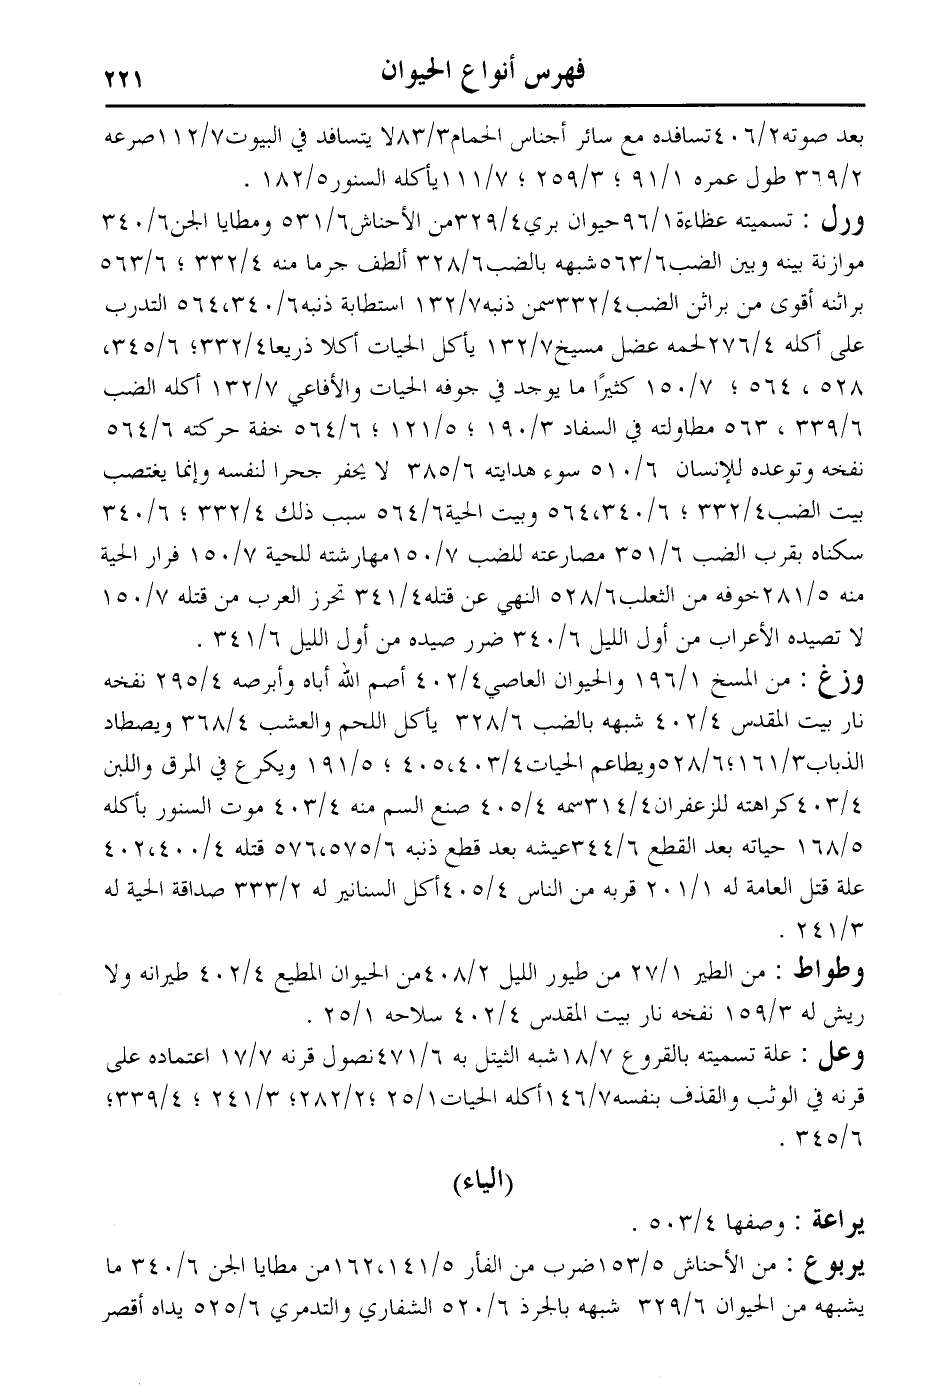 فهرس أنواع الحيوان ٢٢١
بعد صوته٤٠٦/٢تسافده مع سائر أجناس الحمام٨٣/٣لا يتسافد في البيوت١١٢/٧صرعه
٣٦٩/٢ طول عمره ٩١/١ ؛ ٢٥٩/٣ ؛ ١١١/٧يأكله السنور١٨٢/٥ .
ورل : تسميته عظاءة٩٦/١حيوان بري٣٢٩/٤من الأحناش٥٣١/٦ ومطايا الجن٣٤٠/٦
موازنة بينه وبين الضب٥٦٣/٦شبهه بالضب٣٢٨/٦ ألطف جرما منه ٣٣٢/٤ ؛ ٥٦٣/٦
براثنه أقوى من براثن الضب٣٣٢/٤سمن ذنبه١٣٢/٧ استطابة ذنبه٥٦٤،٣٤٠/٦ التدرب
على أكله ٢٧٦/٤لحمه عضل مسيخ١٣٢/٧ يأكل الحيات أكلا ذريعا٣٣٢/٤؛ ٣٤٥/٦،
٥٢٨ ، ٥٦٤ ؛ ١٥٠/٧ كثيرًا ما يوجد في جوفه الحيات والأفاعي ١٣٢/٧ أكله الضب
٣٣٩/٦ ، ٥٦٣ مطاولته في السفاد ١٩٠/٣ ؛ ١٢١/٥ ؛ ٥٦٤/٦ خفة حركته ٥٦٤/٦
نفخه وتوعده للإنسان ٥١٠/٦ سوء هدايته ٣٨٥/٦ لا يحفر جحرا لنفسه وإنما يغتصب
بيت الضب٣٣٢/٤ ؛ ٥٦٤،٣٤٠/٦ وبيت الحية٥٦٤/٦ سبب ذلك ٣٣٢/٤ ؛ ٣٤٠/٦
سكناه بقرب الضب ٣٥١/٦ مصارعته للضب ١٥٠/٧مهارشته للحية ١٥٠/٧ فرار الحية
منه ٢٨١/٥خوفه من الثعلب٥٢٨/٦ النهي عن قتله٣٤١/٤ تحرز العرب من قتله ١٥٠/٧
لا تصيده الأعراب من أول الليل ٣٤٠/٦ ضرر صيده من أول الليل ٣٤١/٦ .
وزغ : من المسخ ١٩٦/١ والحيوان العاصي٤٠٢/٤ أصم الله أباه وأبرصه ٢٩٥/٤ نفخه
نار بيت المقدس ٤٠٢/٤ شبهه بالضب ٣٢٨/٦ يأكل اللحم والعشب ٣٦٨/٤ ويصطاد
الذباب١٦١/٣؛٥٢٨/٦ويطاعم الحيات٤٠٥،٤٠٣/٤ ؛ ١٩١/٥ ويكرع في المرق واللبن
٤٠٣/٤كراهته للزعفران٣١٤/٤سمه ٤٠٥/٤ صنع السم منه ٤٠٣/٤ موت السنور بأكله
١٦٨/٥ حياته بعد القطع ٣٤٤/٦عيشه بعد قطع ذنبه ٥٧٦،٥٧٥/٦ قتله ٤٠٢،٤٠٠/٤
علة قتل العامة له ٢٠١/١ قربه من الناس ٤٠٥/٤أكل السنانير له ٣٣٣/٢ صداقة الحية له
٢٤١/٣ .
وطواط : من الطير ٢٧/١ من طيور الليل ٤٠٨/٢من الحيوان المطيع ٤٠٢/٤ طيرانه ولا
ريش له ١٥٩/٣ نفخه نار بيت المقدس ٤٠٢/٤ سلاحه ٢٥/١ .
وعل : علة تسميته بالقروع ١٨/٧شبه الثيتل به ٤٧١/٦نصول قرنه ١٧/٧ اعتماده على
قرنه في الوثب والقذف بنفسه١٤٦/٧أكله الحيات٢٥/١ ؛٢٨٢/٢؛ ٢٤١/٣ ؛ ٣٣٩/٤؛
٣٤٥/٦ .
(الياء)
يراعة : وصفها ٥٠٣/٤ .
يربوع : من الأحناش ١٥٣/٥ضرب من الفأر ١٦٢،١٤١/٥من مطايا الجن ٣٤٠/٦ ما
يشبهه من الحيوان ٣٢٩/٦ شبهه بالجرذ ٥٢٠/٦ الشفاري والتدمري ٥٢٥/٦ يداه أقصر